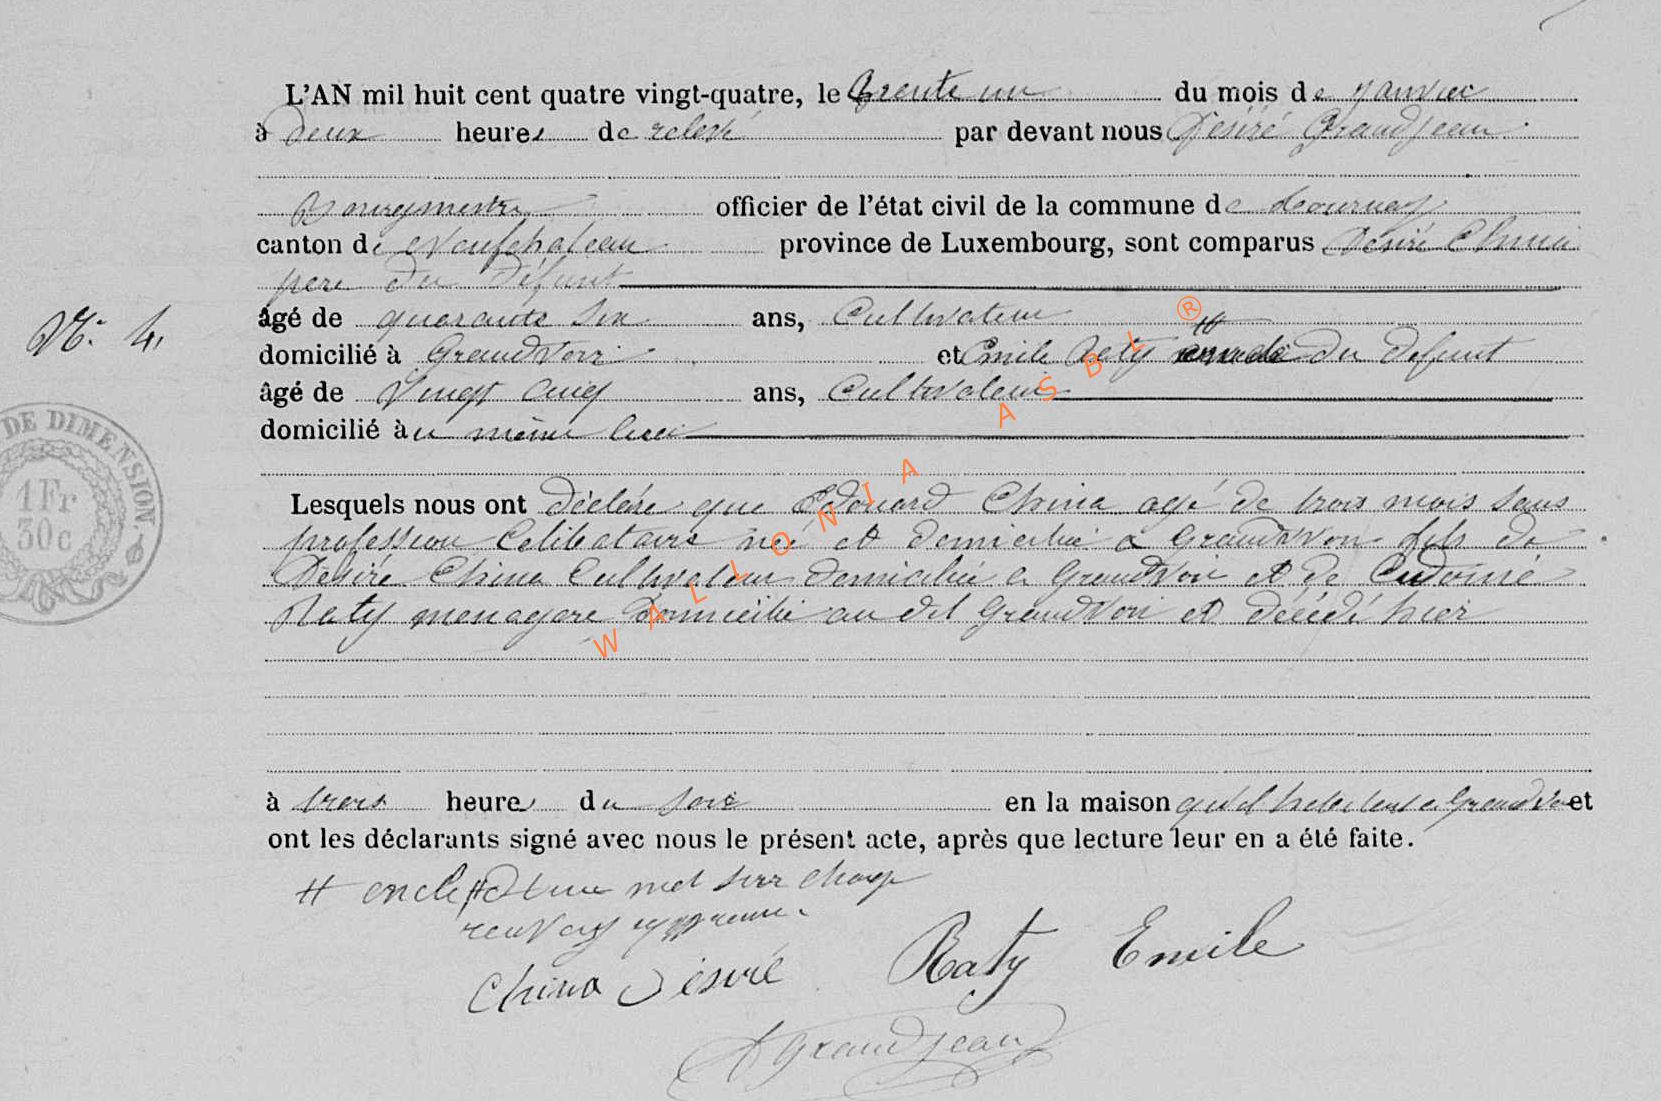 L'AN mil huit cent quatre vingt-quatre, le trente un du mois de janvier
à deux heures de relevé par devant nous Désiré Grandjean
Bourgmestre officier de l'état civil de la commune de Tournay
canton de Neufchateau province de Luxembourg, sont comparus Désiré China
père du défunt
âgé de quarante six ans, Cultivateur
N° 4,
domicilié à Grandvoir et Emile Raty du défunt
âgé de Vingt cinq ans, Cultivateur
domicilié au même lieu
DE DIMENSION.
1 Fr
30 c
Lesquels nous ont déclaré que Edouard China agé de trois mois sans
profession Celibataire né et domicilié à Grandvoir fils de
Désiré China Cultivateur domicilié a Grandvoir et de
Raty menagere domicilié au dit Grandvoir et décédé hier
WALLONIA ASBL ®
à trois heures du soir en la maison qu'il a Grandvoir et
ont les déclarants signé avec nous le présent acte, après que lecture leur en a été faite.
# oncle # et un mot sur charge
renvoy
China Désiré Raty Emile
DGrandjean